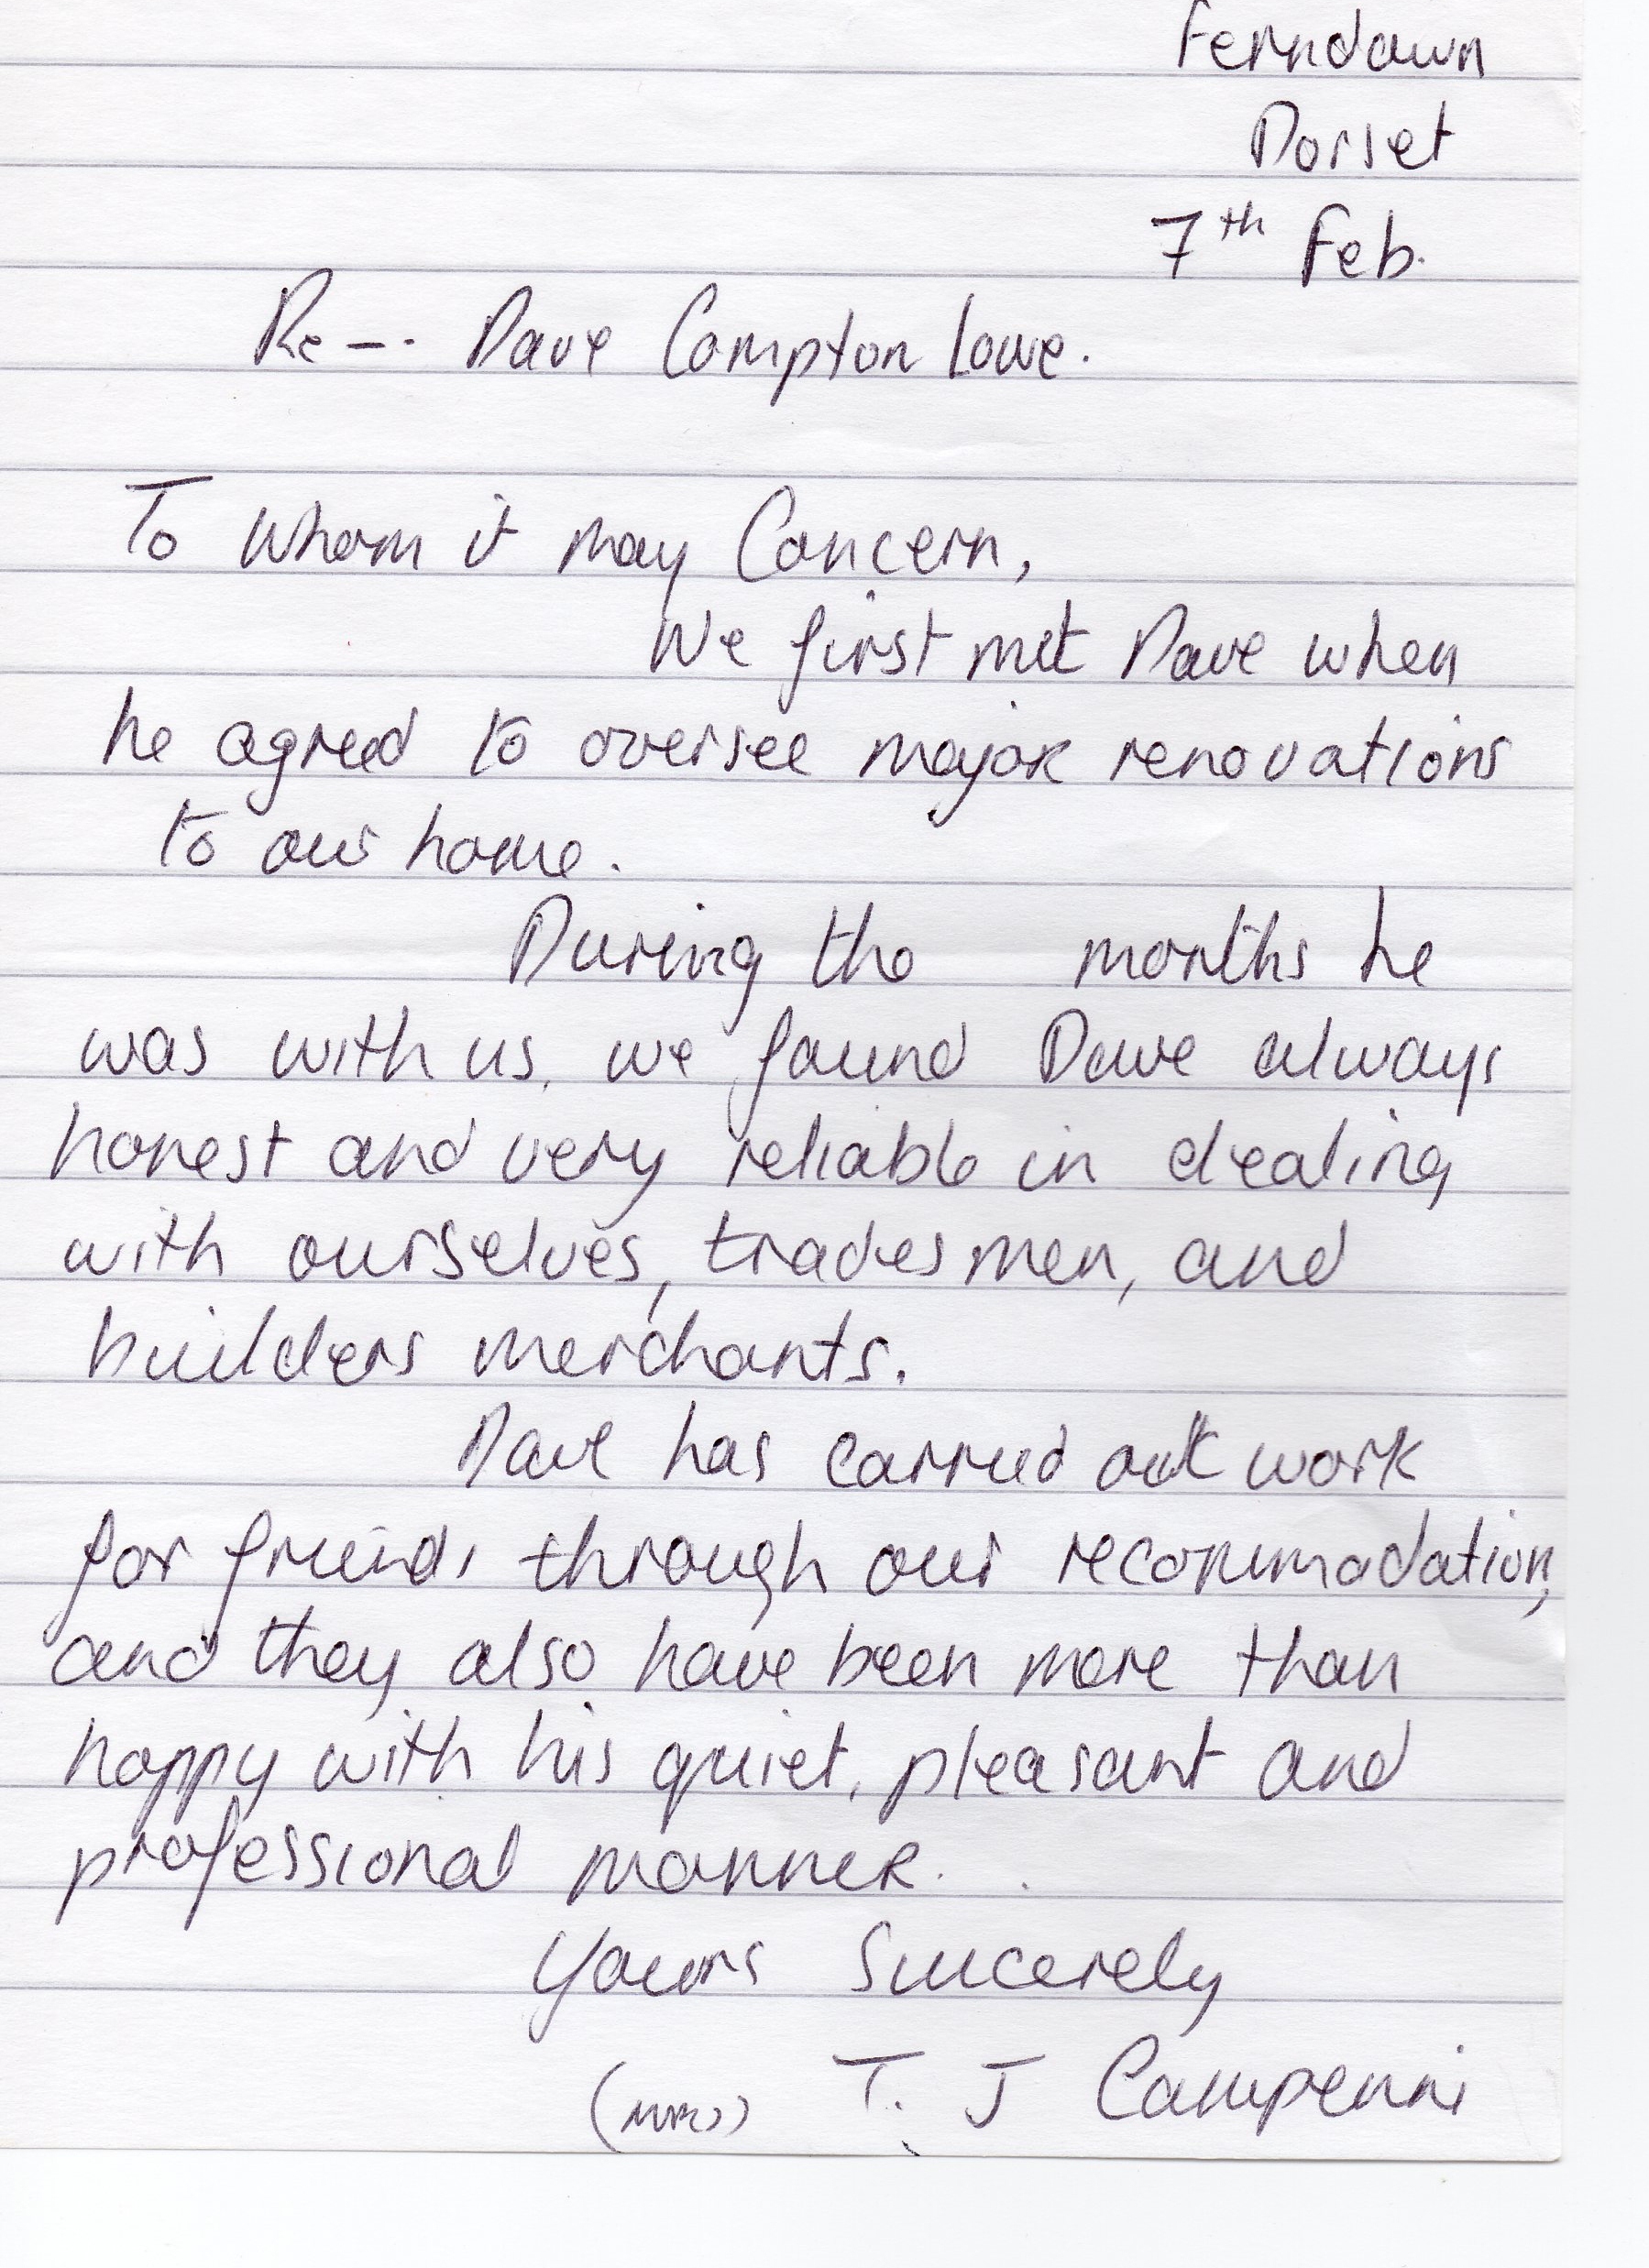 Ferndown
Dorset
7th Feb.
Re -. Dave Compton Lowe.
To Whom it may Concern,
We first met Dave when
he agreed to oversee major renovations
to our home.
During the months he
was with us, we found Dave always
honest and very reliable in dealing
with ourselves, tradesmen, and
builders merchants.
Dave has carried out work
for friends through our recommadation,
and they also have been more than
happy with his quiet, pleasant and
professional manner.
Yours Sincerely
(MRS) T. J Campenni